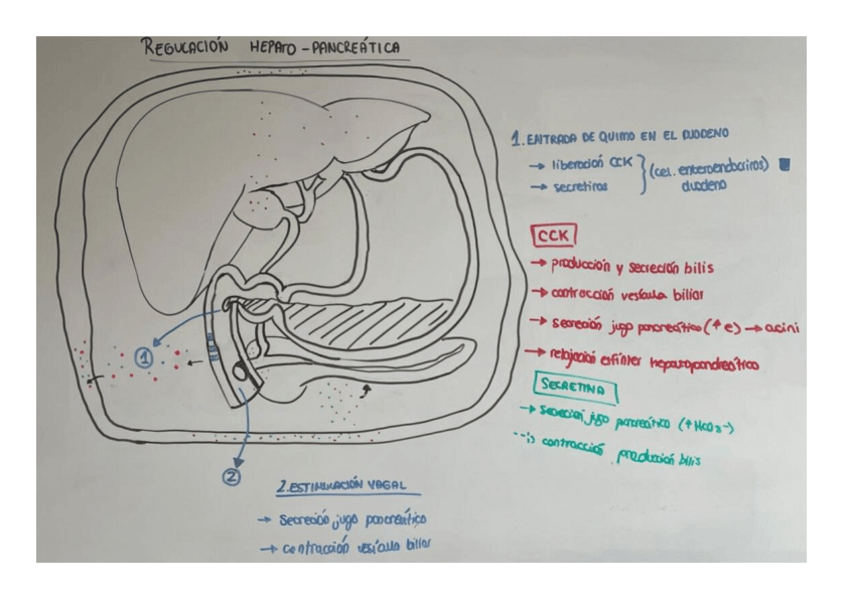 REGULACIÓN HEPATO-PANCREÁTICA
1. ENTRADA DE QUIMO EN EL DUODENO
→ liberación CCK
→ secretinas
(cel. enteroendocrinas)
duodeno
CCK
→ producción y secreción bilis
→ contracción vesícula biliar
→ secreción jugo pancreático (↑ e) → acini
→ relajación esfínter hepatopancreático
SECRETINA
→ secreción jugo pancreático (↑ HCO3-)
--> contracción producción bilis
1
2
2. ESTIMULACIÓN VAGAL
→ Secreción jugo pancreático
→ contracción vesícula biliar